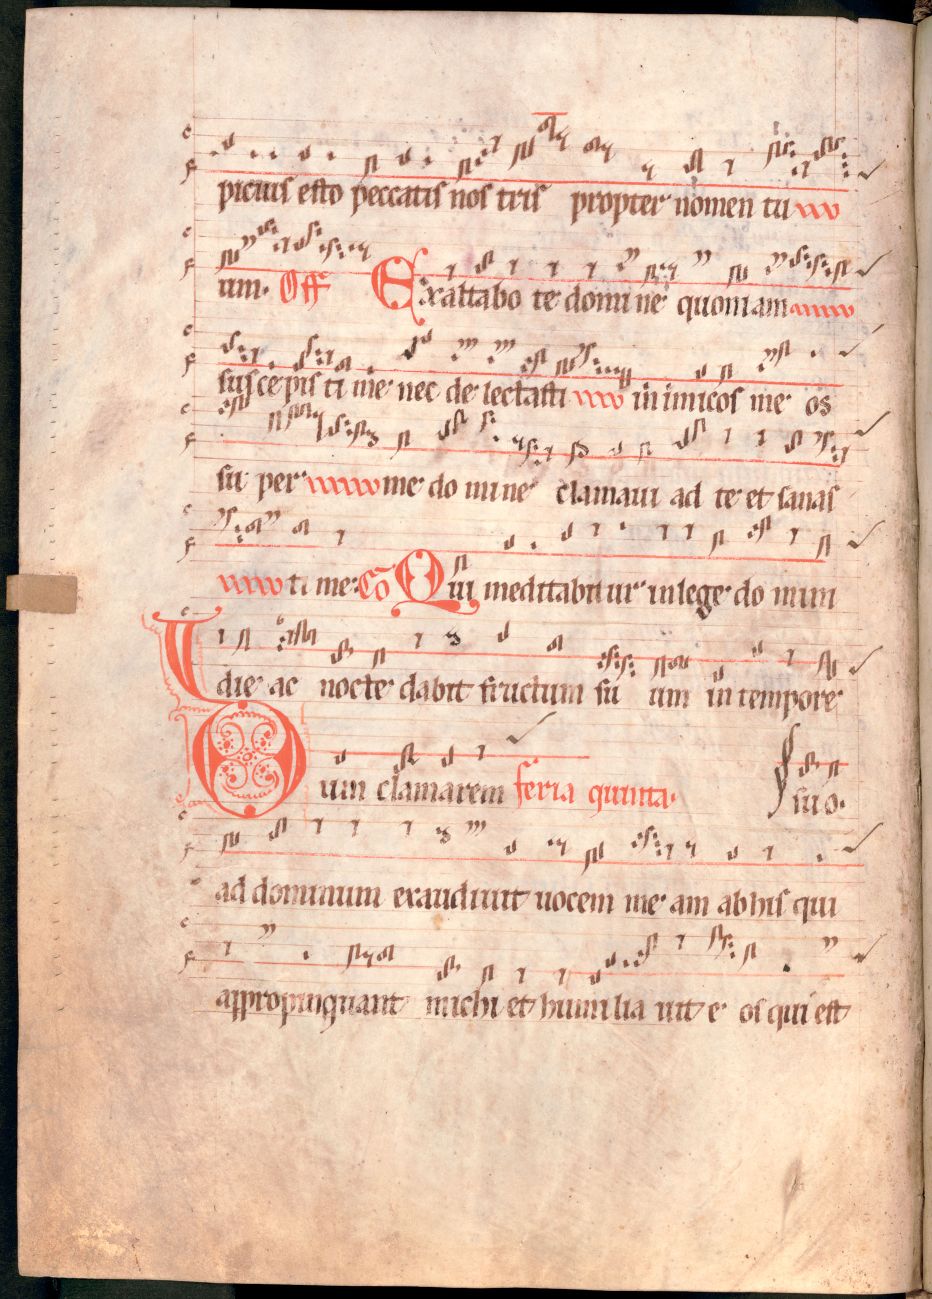 picius esto peccatis nos tris propter nomen tu
um. Off Exaltabo te domi ne quoniam
suscepis ti me nec de lectasti in imicos me os
su per me do mi ne clamaui ad te et sanas
ti me. Co Qui meditabitur in lege do mini
die ac nocte dabit fructum su um in tempore
Dum clamarem feria quinta. suo.
ad dominum exaudiuit uocem me am ab his qui
appropinquant michi et humilia uit e os qui est